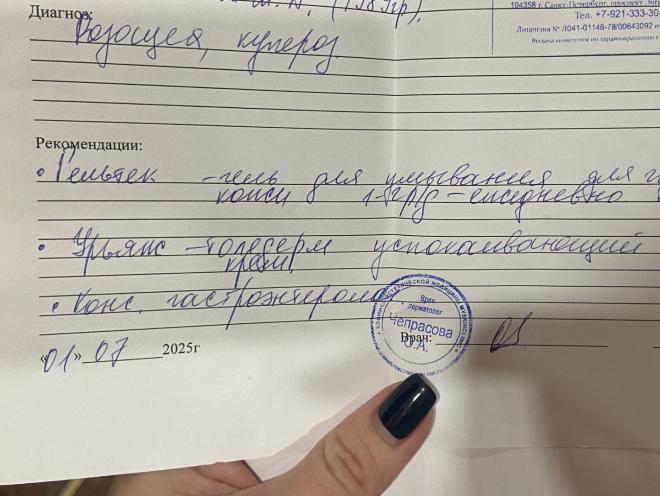 (1989гр).
194358 г. Санкт-Петербург, проспект
Тел. +7-921-333-30-
Лицензия № Л041-01148-78/00643092 о
Диагноз:
Розацеа, купероз.
Рекомендации:
• Гельтек - гель для умывания для
кожи 1-2р/д - ежедневно
• Урьяж - толедерм успокаивающий
крем.
• Конс. гастроэнтеролог
Врач
дерматолог
Чепрасова
О.А.
Врач:
«01» 07 2025г